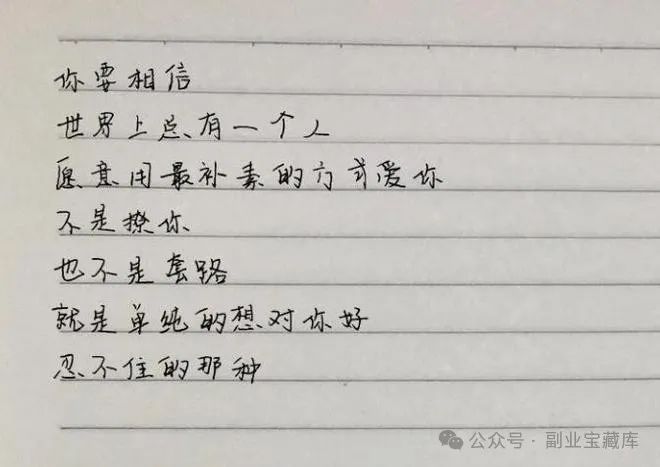 你要相信
世界上总有一个人
愿意用最朴素的方式爱你
不是撩你
也不是套路
就是单纯的想对你好
忍不住的那种
公众号·副业宝藏库